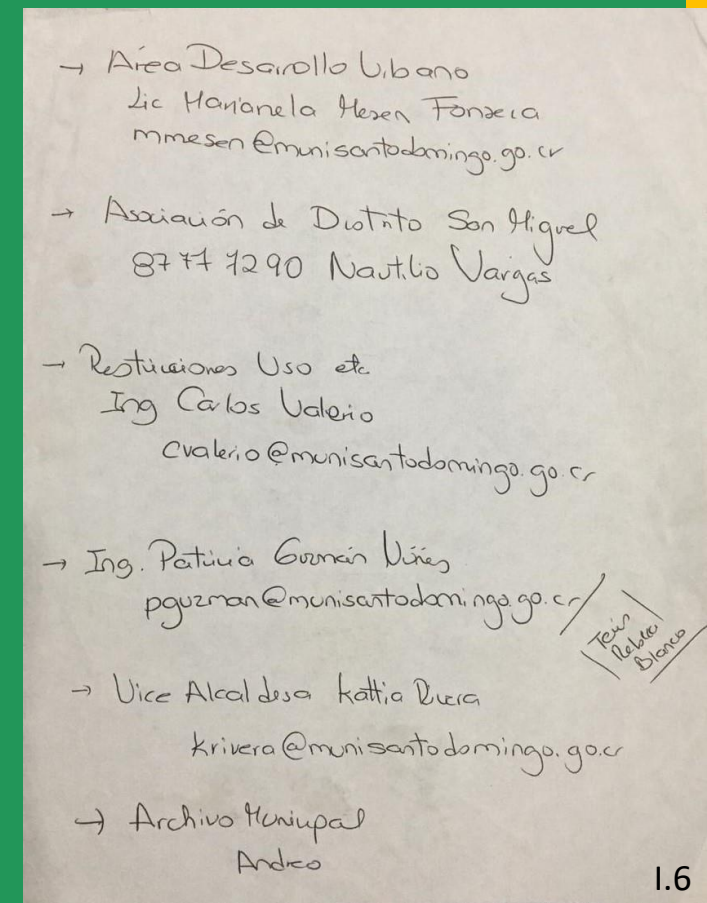 → Área Desarrollo Urbano
Lic Marianela Mesen Fonseca
mmesen@munisantodomingo.go.cr
→ Asociación de Distrito San Miguel
8777 7290 Nautilio Vargas
→ Restricciones Uso etc
Ing Carlos Valerio
cvalerio@munisantodomingo.go.cr
→ Ing. Patricia Guzmán
pguzman@munisantodomingo.go.cr
Tesis
Rebeca
Blanco
→ Vice Alcaldesa Kattia Rivera
krivera@munisantodomingo.go.cr
→ Archivo Municipal
I.6